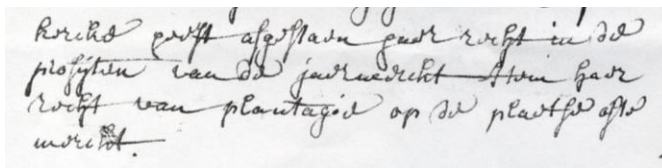 kercke heeft afgestaen haer recht in de
profijten van de jaermerckt Item haer
recht van plantagie op de plaetse ofte
merckt.